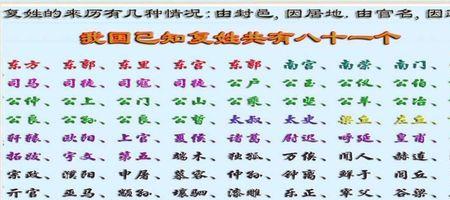 复姓的来历有几种情况:由封邑,因居地.由官名,因
我国已知复姓共有八十一个
东方、东郭、东里、东宫、东郭、南宫、南荣、南门、
司马、司徒、司寇、司徒、公户、公玉、公仪、公伯、
公仲、公上、公门、公山、公乘、公坚、公羊、公冶、
公良、公孙、公良、公皙、太叔、太史、梁丘、左丘、
轩辕、欧阳、上官、夏侯、诸葛、尉迟、呼延、皇甫、
拓跋、宇文、第五、端木、独孤、万俟、闻人、赫连、
宗政、濮阳、申屠、慕容、仲孙、钟离、鲜于、闾丘、
亓官、巫马、颛孙、壤驷、漆雕、乐正、宰父、谷梁、